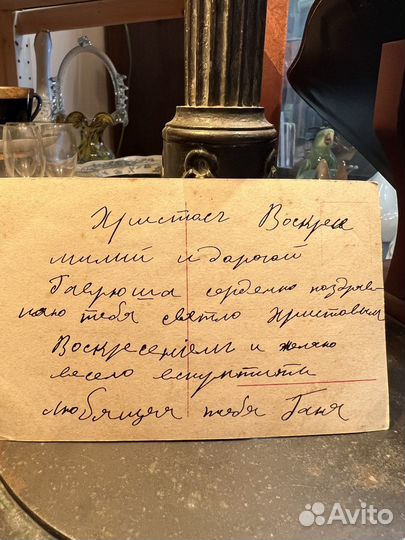 Христосъ Воскресе
милий и дорогой
Гаврюша сердечно поздрав
ляю тебя святло Христовым
Воскресеніемъ и желаю
весело
Любящая тебя Ганя
Avito